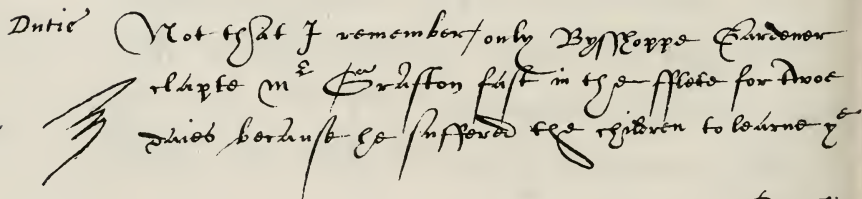 Dutie Not that I remember / only Bysshoppe Gardener
clapte mr Grafton fast in the fflete for twoe
daies because he suffered the children to learne ye